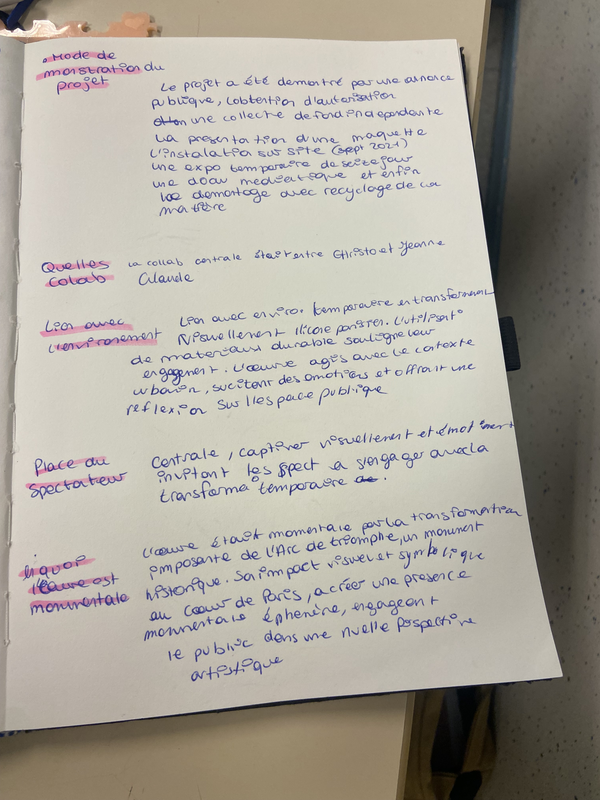 . Mode de
monstration du
projet
Le projet a été demontré par une annonce
publique, l'obtention d'autorisation
une collecte de fond independente
La presentation d'une maquette
L'instalation sur site (sept 2021)
une expo temporaire de seize jour
une docu mediatique et enfin
le demontage avec recyclage de la
matière
Quelles
colab
La collab centrale était entre Christo et Jeanne
Claude
Lien avec
l'environement
Lien avec enviro. temporaire en transformant
visuellement l'icone parisien. L'utilisat°
de materiaux durable souligne leur
engagement. L'œuvre agis avec le contexte
urbain, sucitant des emotions et offrant une
reflexion sur l'espace publique
Place du
Spectateur
Centrale, captiver visuellement et émotivement
invitant les spect a s'engager avec la
transforma° temporaire.
l'œuvre est
monumentale
L'œuvre était momentale par la transformation
imposante de l'Arc de triomphe, un monument
historique. Son impact visuel et symbolique
au cœur de Paris, a créer une presence
monumentale éphémère, engageant
le public dans une nvelle perspective
artistique